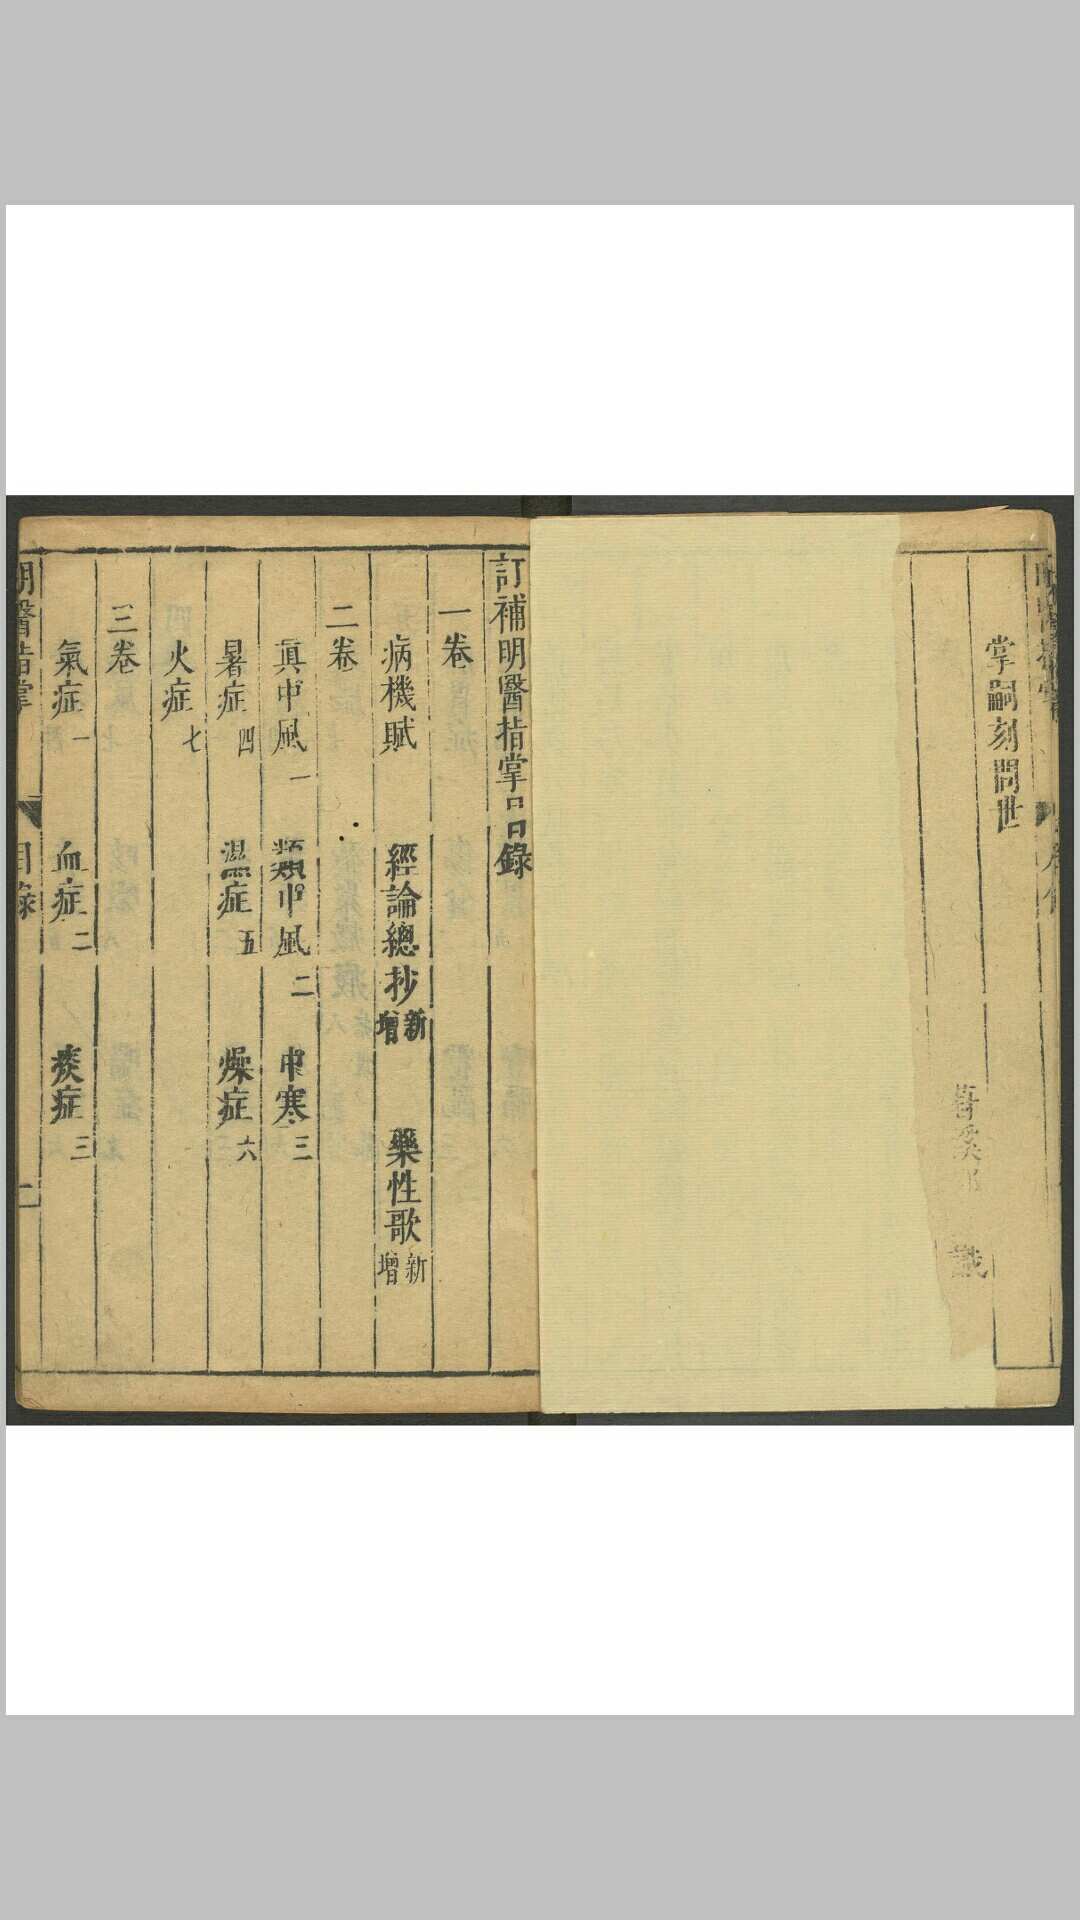 掌嗣刻問世
識
訂補明醫指掌目錄
一卷
病機賦 經論總抄新增 藥性歌新增
二卷
眞中風一 類中風二 中寒三
暑症四 濕症五 燥症六
火症七
三卷
氣症一 血症二 痰症三
明醫指掌 目錄 一